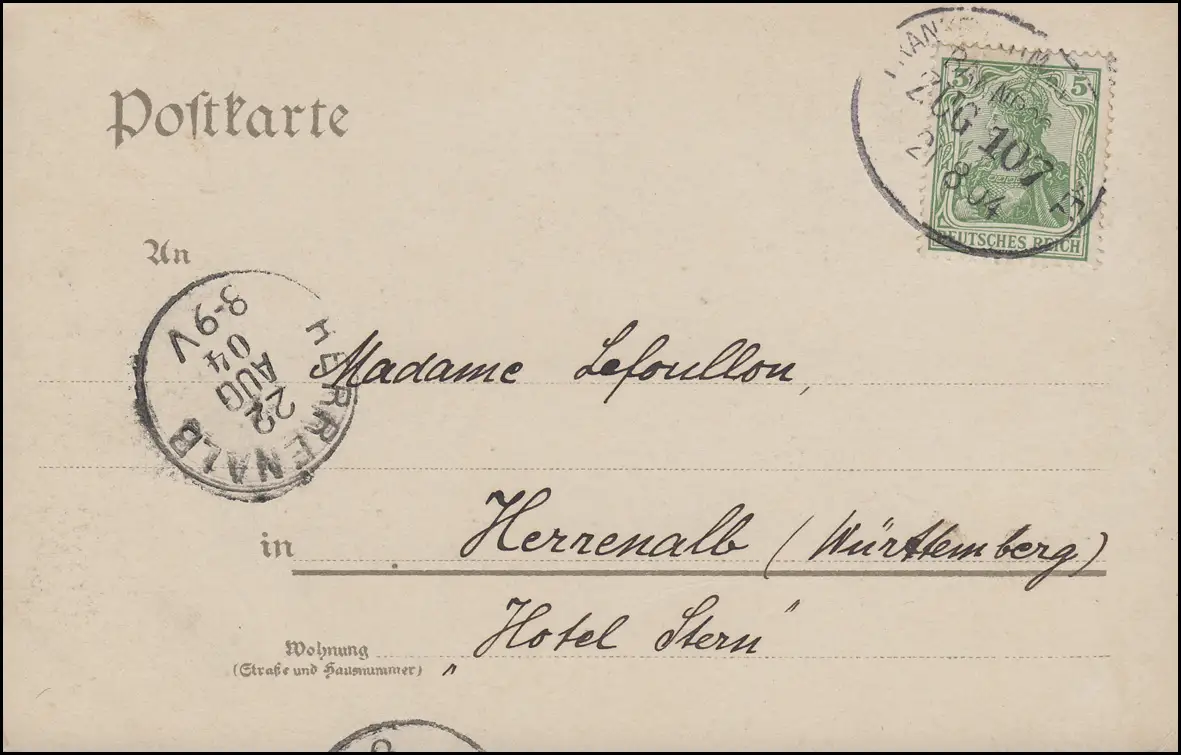 Postkarte
5 5
ZUG 107
21 8 04
DEUTSCHES REICH
An
HERRENALB
22 AUG 04
8-9V
Madame Lefoullon,
in Herrenalb (Württemberg)
Wohnung
(Straße und Hausnummer)
„Hotel Stern"